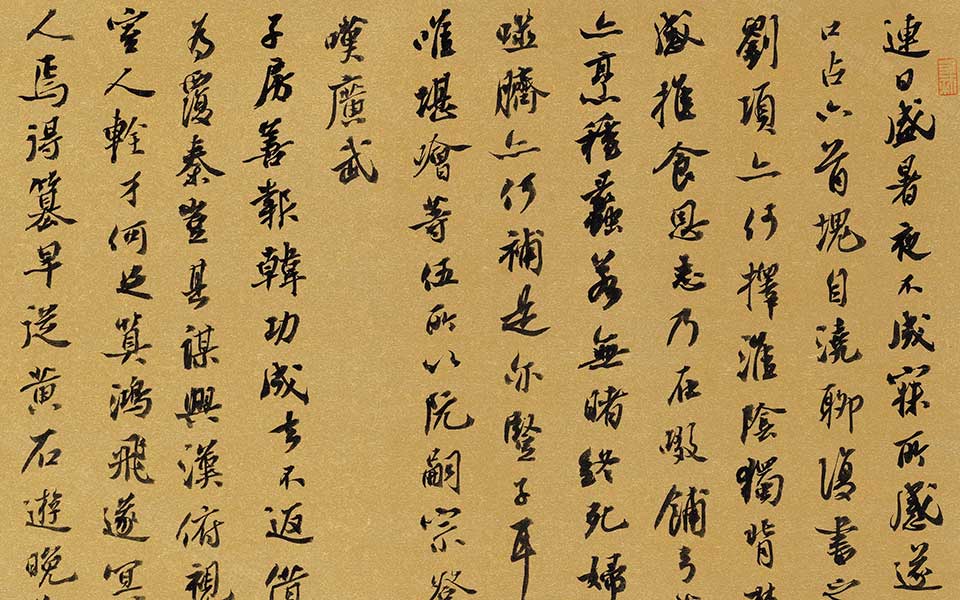 連日盛暑夜不成寐所感遂
口占六首塊自澆聊復書之
劉項亦何擇淮陰獨背楚
感推食恩志乃在啜餔
亦烹種蠡若無睹終死婦
噬臍亦何補是亦豎子耳
唯堪噲等伍所以阮嗣宗登
嘆廣武
子房善報韓功成去不返借
為覆秦豈其謀興漢俯視
人輇才何足算鴻飛遂冥
人焉得篡早從黃石遊晚